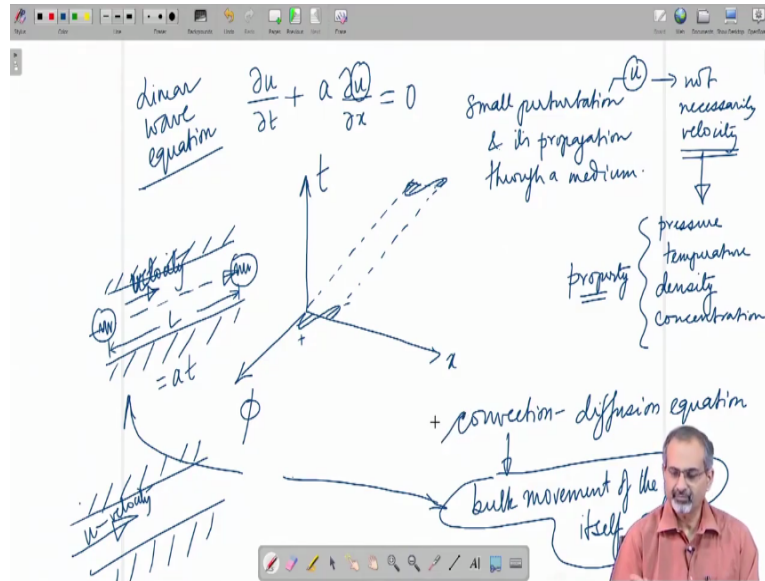 Style
Color
Line
Eraser
Backgrounds
Undo
Redo
Pages
Previous
Next
Erase
Board
Web
Documents
Show Desktop
OpenBoard
Linear
wave
equation
∂u/∂t + a ∂u/∂x = 0
small perturbation
& its propagation
through a medium.
u → not
necessarily
velocity
property
pressure
temperature
density
concentration
t
x
ϕ
+
velocity
L
= at
convection - diffusion equation
bulk movement of the
itself
u-velocity